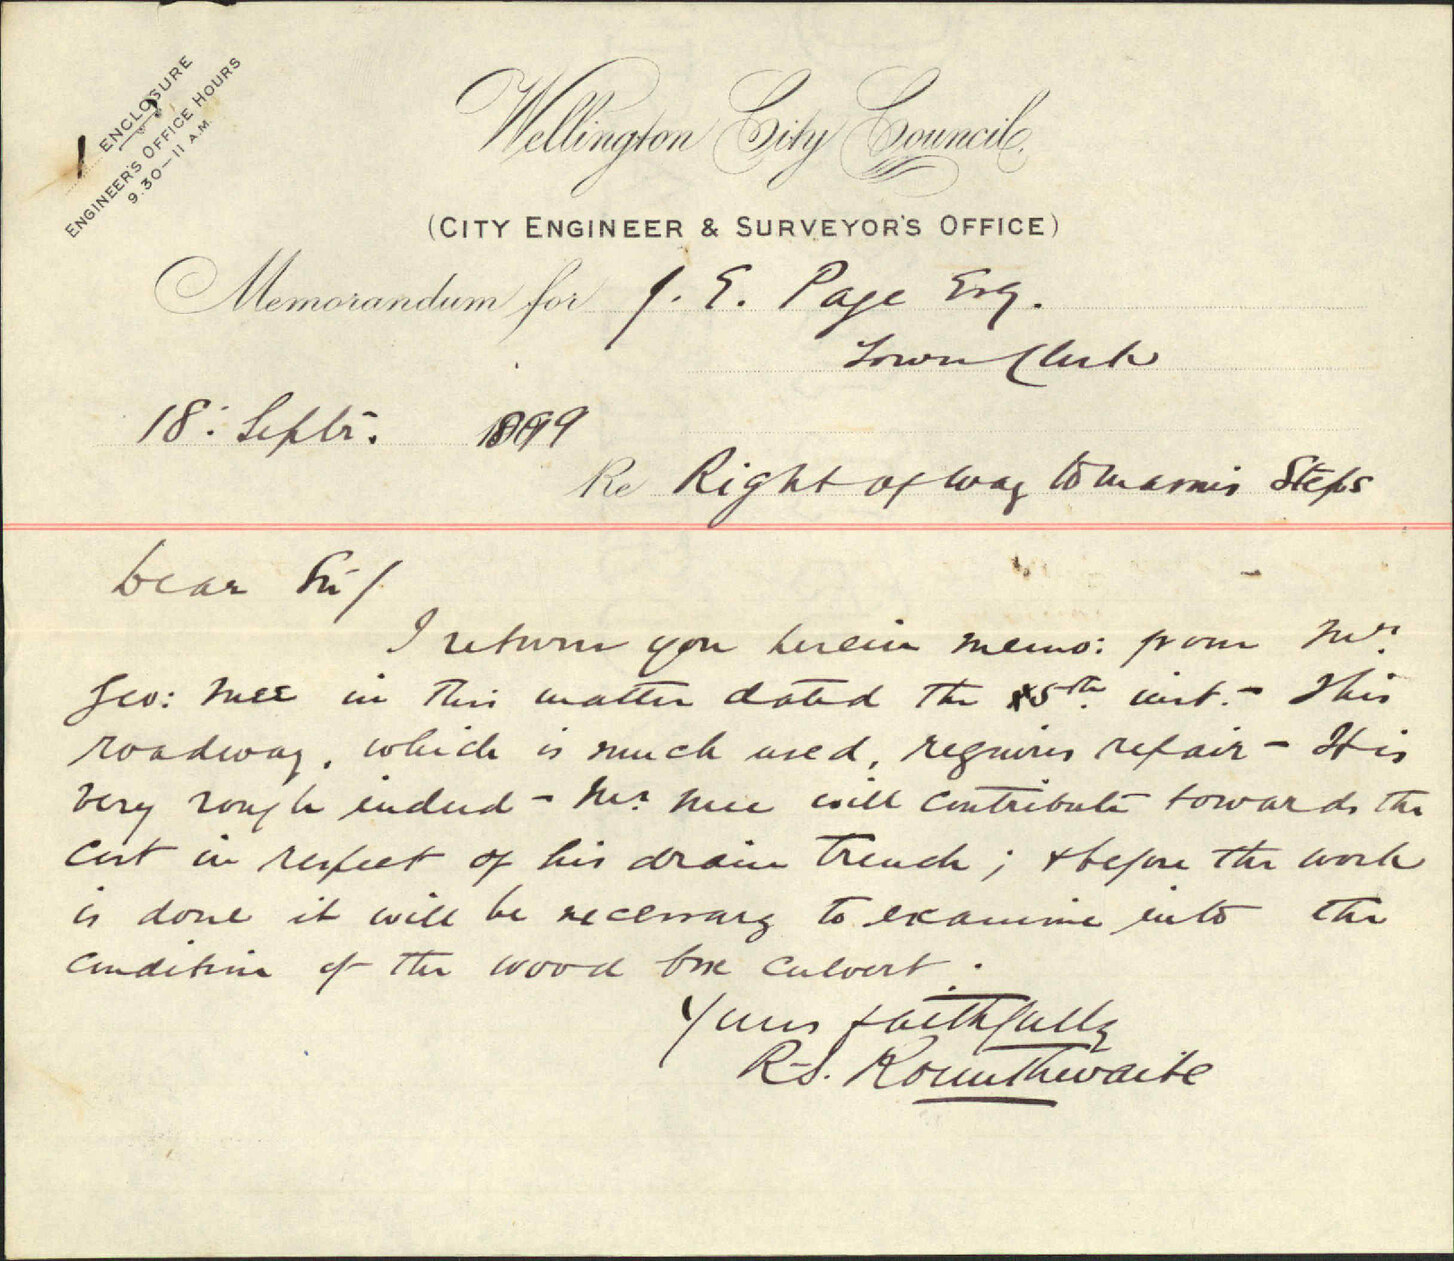 1 ENCLOSURE
ENGINEER'S OFFICE HOURS
9.30—11 A.M
Wellington City Council.
(CITY ENGINEER & SURVEYOR'S OFFICE)
Memorandum for J. E. Page Esq.
Town Clerk
18: Septr. 1899
Re Right of way to Steps
Dear Sir/
I return you herein memo: from Mr.
Geo: Mee in this matter dated the 5th. inst. - This
roadway, which is much used, requires repair - It is
very rough indeed - Mr. Mee will contribute towards the
cost in respect of his drain trench; & before the work
is done it will be necessary to examine into the
condition of the wood box culvert.
Yours faithfully
R.S. Rounthwaite